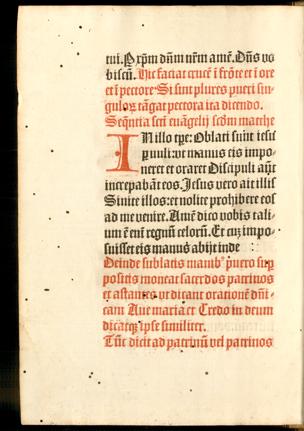 tui. P xp̄m dn̄m nr̄m amē. Dn̄s vo
biscū. Hic faciat crucē ī frōte et ī ore
et ī pectore Si sunt plures pueri sin⸗
guloꝝ tāgat pectora ita dicendo.
Seqn̄tia scti̅ euāgelij scdm̄ matthe
IN illo tp̄e: Oblati sunt iesu
puuli: vt manus eis impo⸗
neret et oraret Discipuli aūt
increpabāt eos. Jesus vero ait illis
Sinite illos: et nolite prohibere eos
ad me venire. Amē dico vobis tali⸗
um ē em̄ regnū celorū. Et cū impo⸗
suisset eis manus abijt inde
Deinde sublatis manibꝰ puero sup
positis moneat sacerdos patrinos
et astantes vt dicant orationē dn̄i⸗
cam Aue maria et Credo in deum
dicatqꝫ ipse similiter.
Tūc dicit ad patrinū vel patrinos